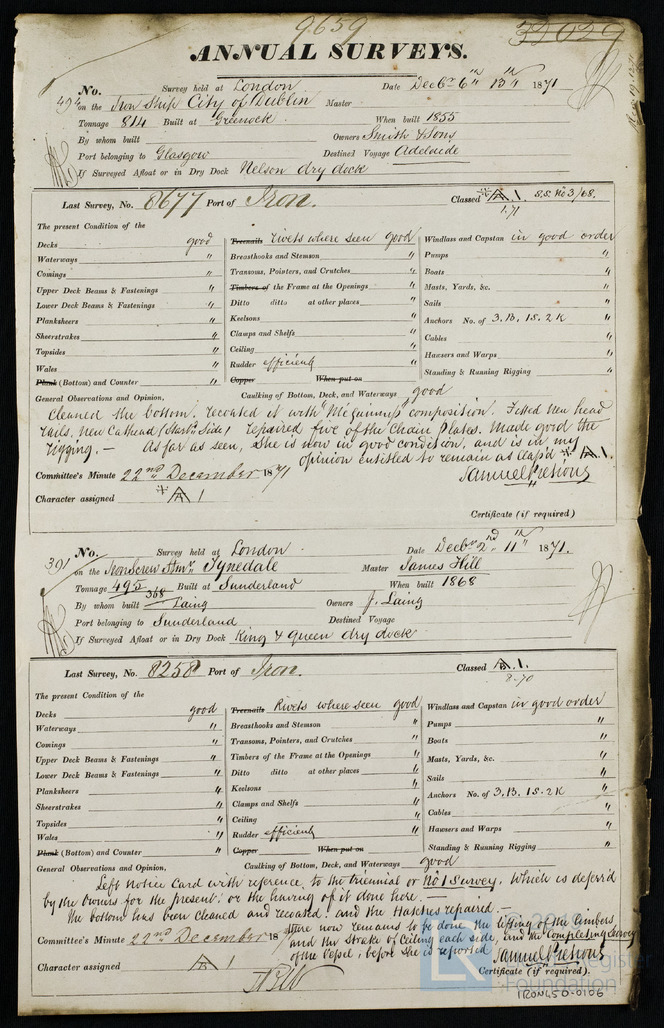 9659
32029
ANNUAL SURVEYS.
No. Survey held at London Date Decbr 6th 13th 1871
494 on the Iron Ship City of Dublin Master
Tonnage 814 Built at Greenock When built 1855
By whom built Owners Smith & Sons
Port belonging to Glasgow Destined Voyage Adelaide
If Surveyed Afloat or in Dry Dock Nelson dry dock
Last Survey, No. 8677 Port of Iron. Classed A 1. S.S. No 3/68.
1.71
The present Condition of the
Decks good Treenails Rivets where seen good Windlass and Capstan in good order
Waterways " Breasthooks and Stemson " Pumps "
Comings " Transoms, Pointers, and Crutches " Boats "
Upper Deck Beams & Fastenings " Timbers of the Frame at the Openings " Masts, Yards, &c. "
Lower Deck Beams & Fastenings " Ditto ditto at other places " Sails "
Planksheers " Keelsons " Anchors No. of 3.B. 1S. 2K "
Sheerstrakes " Clamps and Shelfs " Cables "
Topsides " Ceiling " Hawsers and Warps "
Wales " Rudder efficient Standing & Running Rigging "
Plank (Bottom) and Counter " Copper When put on
General Observations and Opinion, Caulking of Bottom, Deck, and Waterways good
Cleaned the bottom. recoated it with McGuinness composition. Fitted new head
rails, new Cathead (Starbd Side) repaired five of the Chain Plates. Made good the
rigging. — As far as seen, she is now in good condition, and is in my
opinion entitled to remain as Clas'd A 1.
Committee's Minute 22nd December 1871 Samuel Pretious
Character assigned A 1
Certificate (if required)
No. Survey held at London Date Decbr 2nd 11th 1871.
391 on the Iron Screw Stmr Tynedale Master James Hill
Tonnage 495 368 Built at Sunderland When built 1868
By whom built Laing Owners J. Laing
Port belonging to Sunderland Destined Voyage
If Surveyed Afloat or in Dry Dock King & Queen dry dock
Last Survey, No. 8258 Port of Iron. Classed A 1.
8.70
The present Condition of the
Decks good Treenails Rivets where seen good Windlass and Capstan in good order
Waterways " Breasthooks and Stemson " Pumps "
Comings " Transoms, Pointers, and Crutches " Boats "
Upper Deck Beams & Fastenings " Timbers of the Frame at the Openings " Masts, Yards, &c. "
Lower Deck Beams & Fastenings " Ditto ditto at other places " Sails "
Planksheers " Keelsons " Anchors No. of 3.B. 1S. 2K "
Sheerstrakes " Clamps and Shelfs " Cables "
Topsides " Ceiling " Hawsers and Warps "
Wales " Rudder efficient Standing & Running Rigging "
Plank (Bottom) and Counter " Copper When put on
General Observations and Opinion, Caulking of Bottom, Deck, and Waterways good
Left notice Card with reference to the triennial or No 1 Survey, which is defer'd
by the owners for the present. or the having of it done here. —
The bottom has been cleaned and recoated. and the Hatches repaired. —
There now remains to be done the lifting of the Limbers
Committee's Minute 22nd December 18 and the Strake of Ceiling each side, and the Completing Survey
of the Vessel, before she is reported Samuel Pretious
Character assigned A 1
Certificate (if required).
LR
Foundation
IRON450-0106